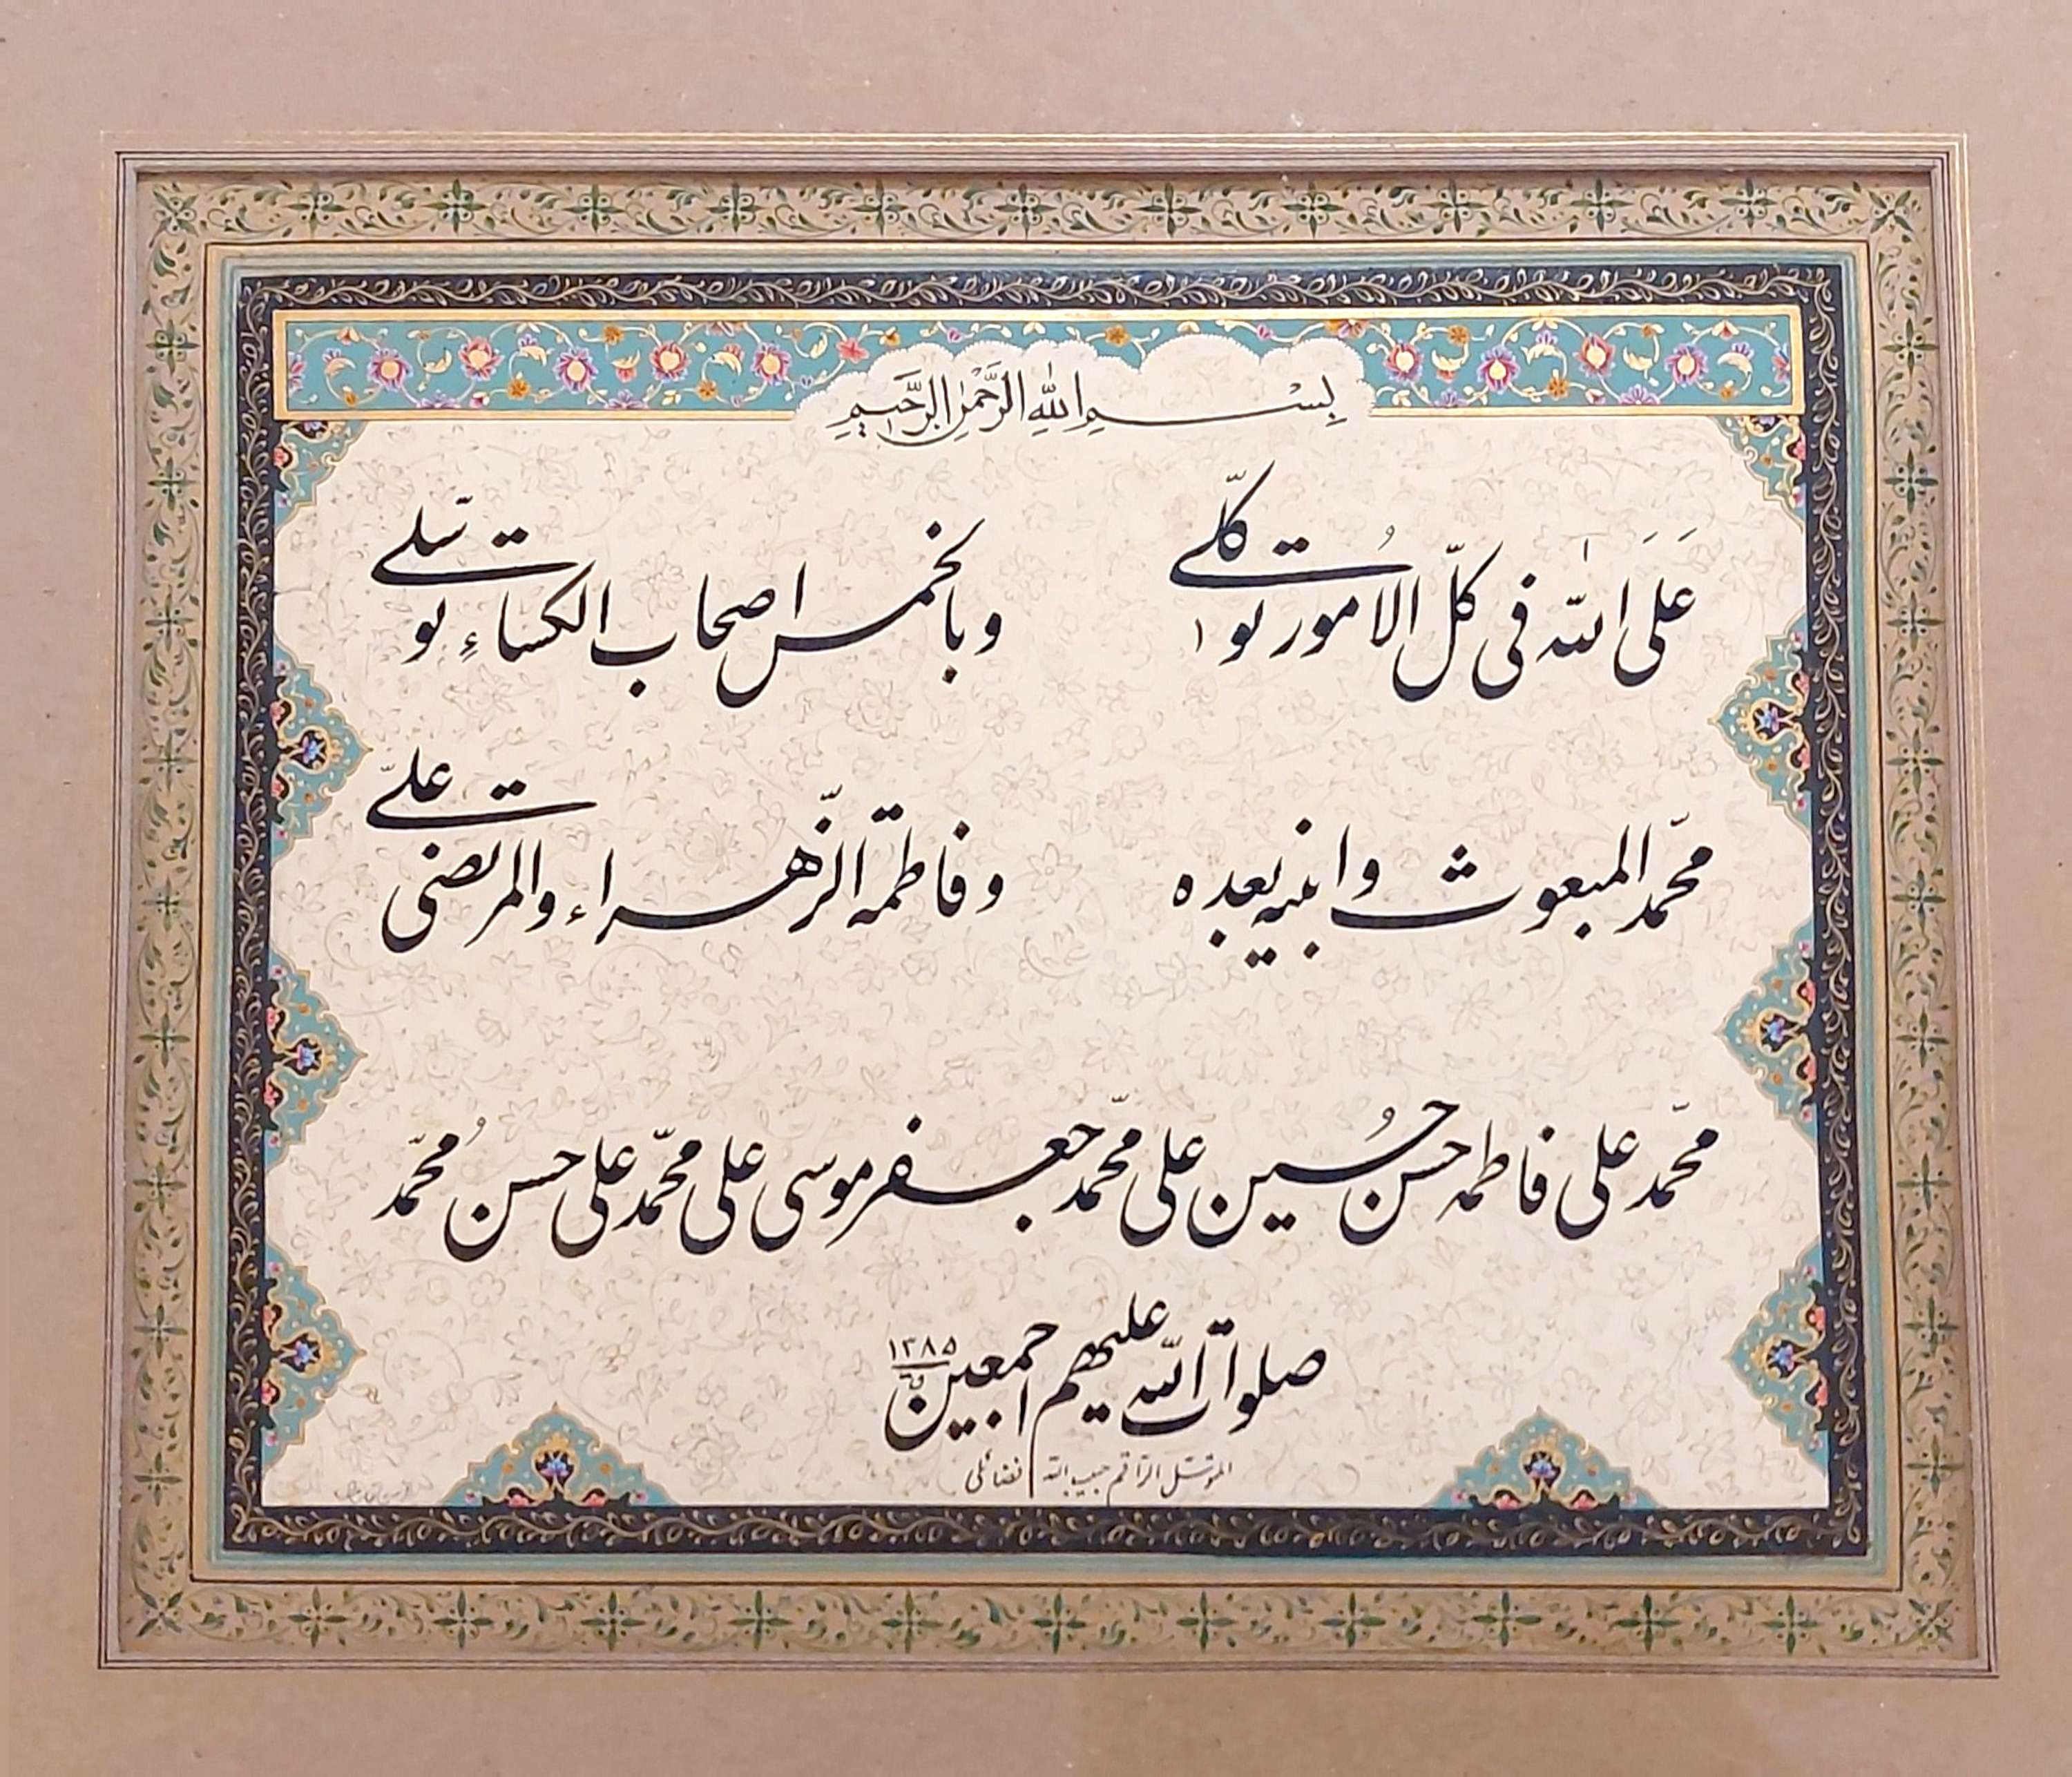 بِسْمِ اللّٰهِ الرَّحْمٰنِ الرَّحِيمِ
عَلَى اللّٰه فى كلّ الامُور توكّلے وبالخمس اصحاب الكساءِ توسّلے
محمّد المبعوث وابنيه بعده وفاطمة الزّهراء والمرتضى علىّ
محمّد على فاطمه حسن حُسين على محمّد جعفر موسى على محمّد على حسن مُحمّد
صلوات اللّه عليهم اجمعين ١٣٨٥
المتوسّل الرّاقم حبيب اللّه فضائلى